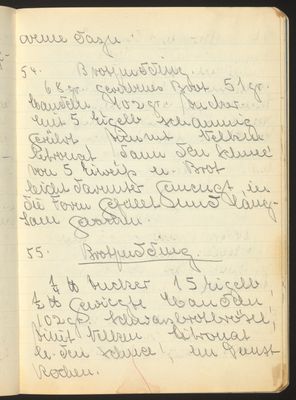 creme dazu.
54. Brotpudding.
68 gr. geriebenes Brot 51 gr.
Mandeln, 102 gr. Zucker
mit 5 Eigelb schaumig
gerührt Zimmt Nelken
Citronat dann den Schnee
von 5 Eiweiß u. Brot
leicht darunter gemengt in
die Form gefüllt und lang-
sam gesotten.
55. Brotpudding.
¼ ℔ Zucker 15 Eigelb,
¼ ℔ gewiegte Mandeln
102 gr. Schwarzbrotbrösel,
Zimt Nelken Citronat
u. den Schnee! im Dunst
kochen.